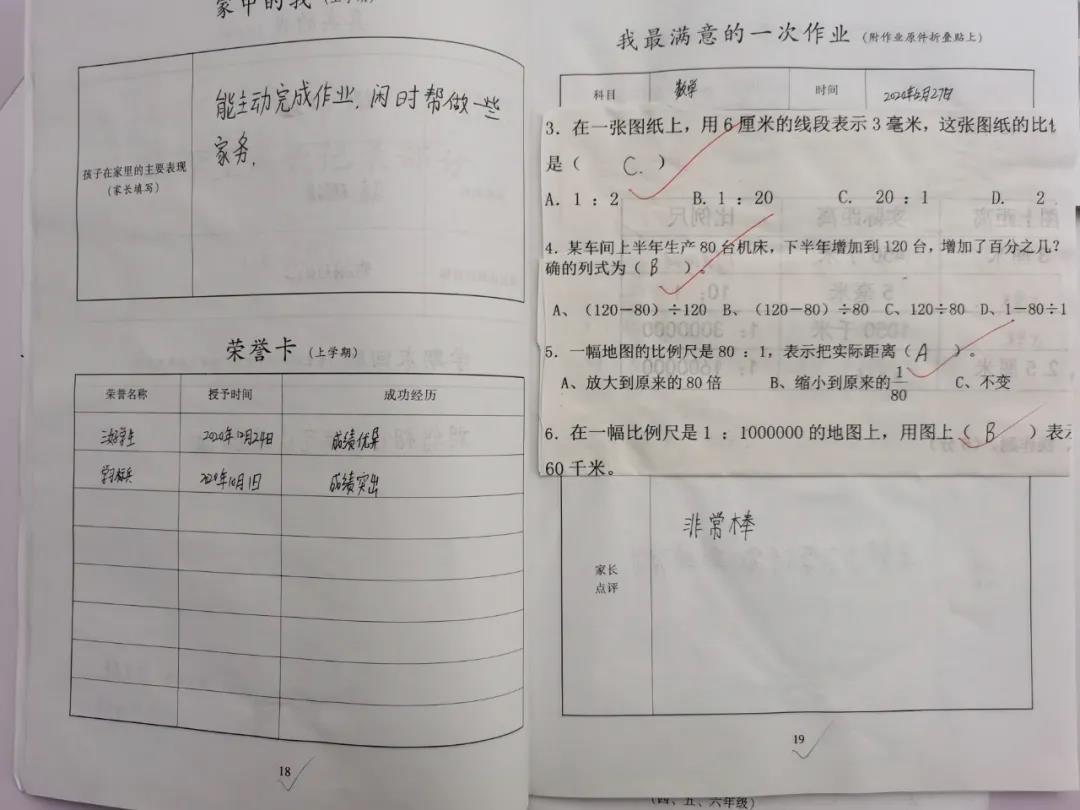 家中的我（上学期）
能主动完成作业，闲时帮做一些
家务，
孩子在家里的主要表现
（家长填写）
荣誉卡（上学期）
荣誉名称 授予时间 成功经历
三好学生 2020年12月29日 成绩优异
学习标兵 成绩突出
18
我最满意的一次作业（附作业原件折叠贴上）
科目 数学 时间
3．在一张图纸上，用 6 厘米的线段表示 3 毫米，这张图纸的比例
是（ C. ）
A．1 ：2 B. 1 ：20 C. 20 ：1 D. 2
4．某车间上半年生产 80 台机床，下半年增加到 120 台，增加了百分之几？
确的列式为（ B ）。
A、（120－80）÷120 B、（120－80）÷80 C、120÷80 D、1－80÷1
5．一幅地图的比例尺是 80 ：1，表示把实际距离（ A ）。
A、放大到原来的 80 倍 B、缩小到原来的 1/80 C、不变
6．在一幅比例尺是 1 ：1000000 的地图上，用图上（ B ）表示
60 千米。
家长
点评
非常棒
19
（四、五、六年级）